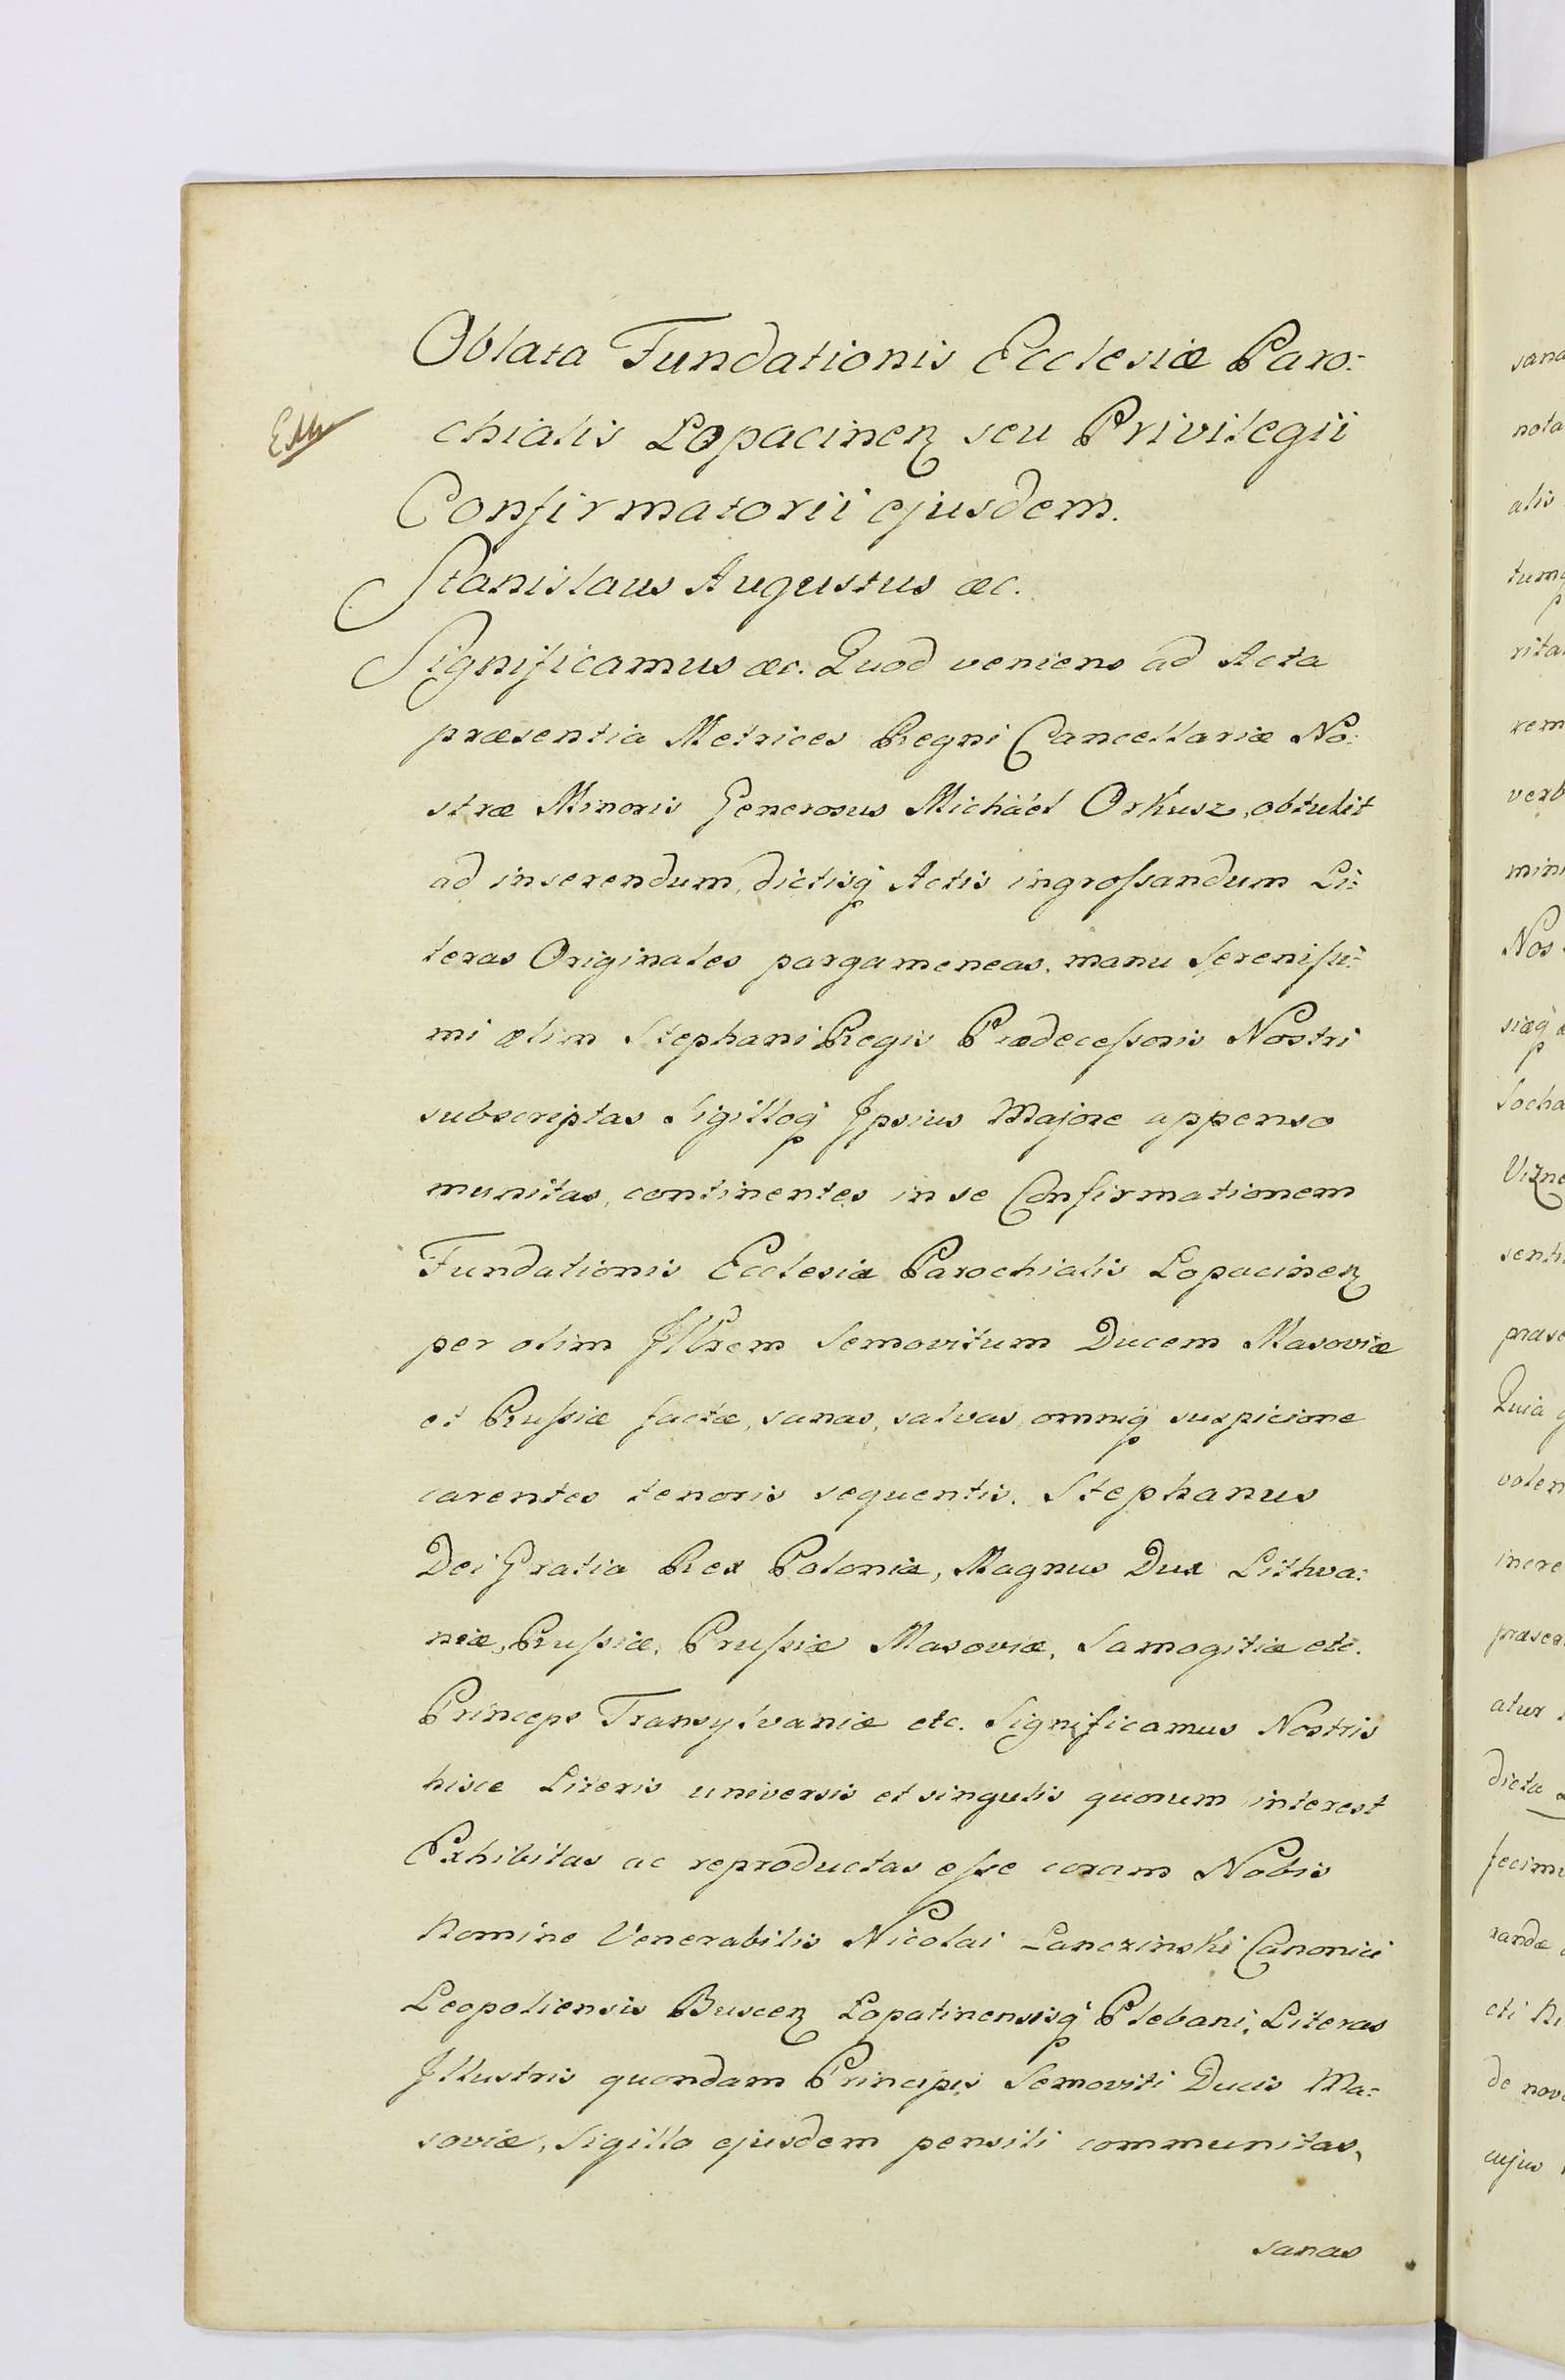 Oblata Fundationis Ecclesiæ Paro:
chialis Lopacinen seu Privilegii
Confirmatorii ejusdem.
Stanislaus Augustus &c.
Significamus &c. Quod veniens ad Acta
præsentia Metrices Regni Cancellariæ No:
stræ Minoris Generosus Michaël Orkusz, obtulit
ad inserendum, dictisq Actis ingroſsandum Li:
teras Originales pargameneas, manu Sereniſsi:
mi olim Stephani Regis Prædeceſsoris Nostri
subscriptas Sigilloq Ipsius Majore appenso
munitas, continentes in se Confirmationem
Fundationis Ecclesiæ Parochialis Lopacinen
per olim Illrem Semovitum Ducem Masoviæ
et Ruſsiæ factæ, sanas, salvas, omniq suspicione
carentes tenoris sequentis. Stephanus
Dei Gratia Rex Poloniæ, Magnus Dux Lithva:
niæ, Ruſsiæ, Pruſsiæ Masoviæ, Samogitiæ etc.
Princeps Transylvaniæ etc. Significamus Nostris
hisce Literis universis et singulis quorum interest
Exhibitas ac reproductas eſse coram Nobis
Nomine Venerabilis Nicolai Lanczinski Canonici
Leopoliensis Buscen Lopatinensisq Plebani, Literas
Illustris quondam Principis Semoviti Ducis Ma:
soviæ, Sigillo ejusdem pensili communitas,
sanas